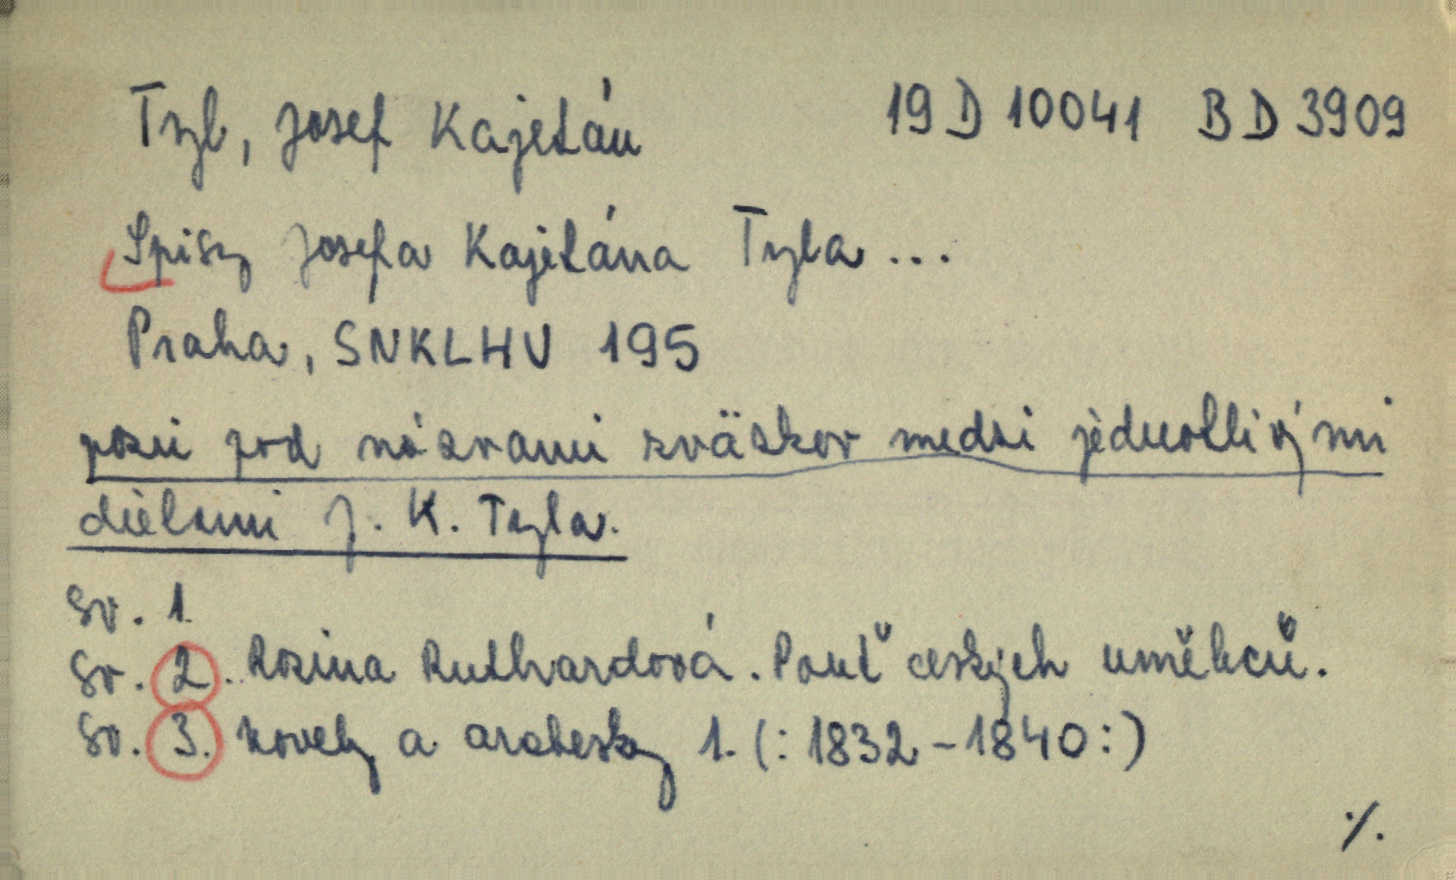 Tyl, Josef Kajetán 19 D 10041 BD 3909
Spisy Josefa Kajetána Tyla ...
Praha, SNKLHU 195
pozri pod názvami zväzkov medzi jednotlivými
dielami J. K. Tyla.
Sv. 1.
Sv. 2. Rozina Ruthardová. Pouť českých umělců.
Sv. 3. Novely a arabesky 1. (: 1832 - 1840 :)
./.